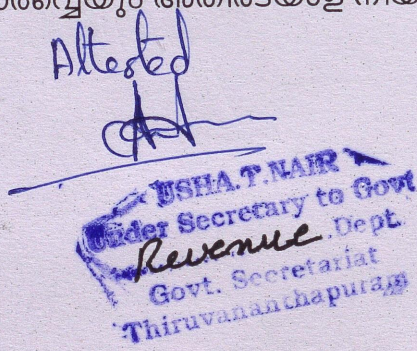 സർവ്വെയും അതിരടയാള നിയ
Attested
USHA.T.NAIR
Under Secretary to Govt
Revenue Dept.
Govt. Secretariat
Thiruvananthapuram